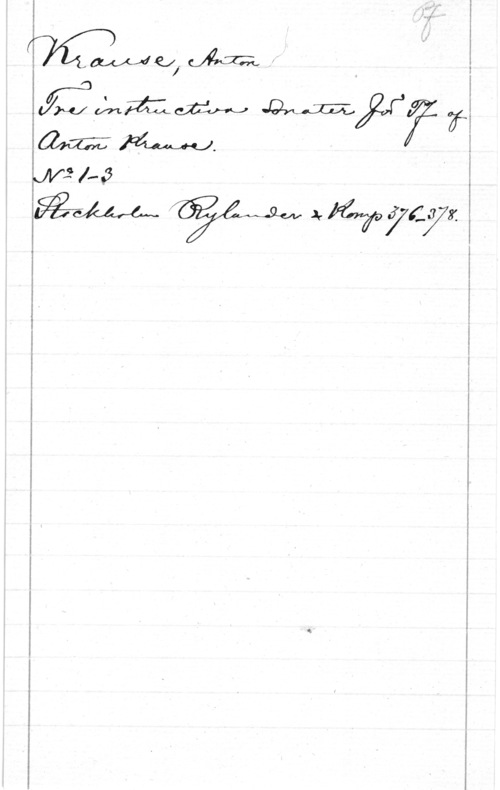 Pf
Krause, Anton
Tre instructiva Sonater för Pf af
Anton Krause.
Nº 1-3
Stockholm Rylander & Komp 376-378.